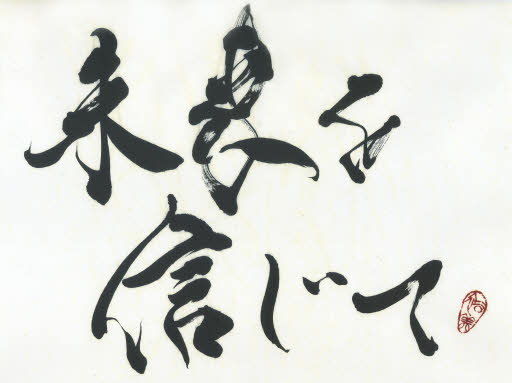 未来を
信じて